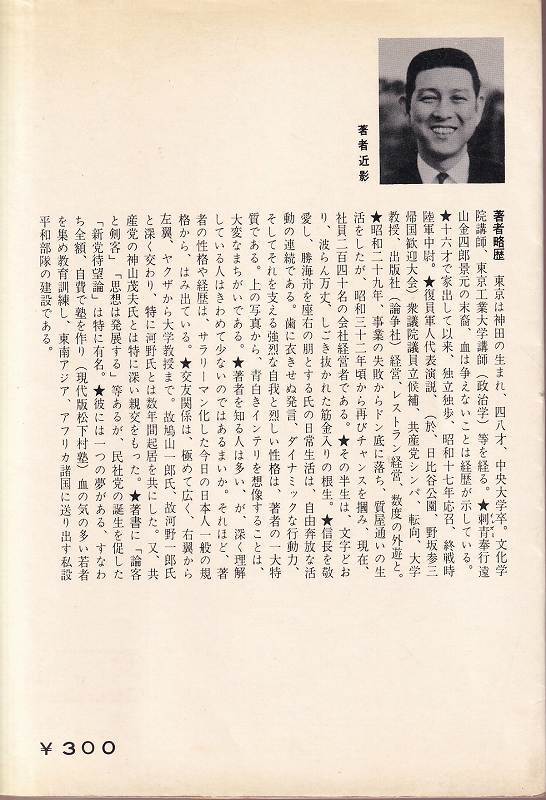 著者近影
著者略歴　東京は神田の生まれ、四八才、中央大学卒。文化学
院講師、東京工業大学講師（政治学）等を経る。★刺青奉行遠
山金四郎景元の末裔、血は争えないことは経歴が示している。
★十六才で家出して以来、独立独歩、昭和十七年応召、終戦時
陸軍中尉。★復員軍人代表演説、（於、日比谷公園、野坂参三
帰国歓迎大会）衆議院議員立候補、共産党シンパ、転向、大学
教授、出版社（論争社）経営、レストラン経営、数度の外遊と。
★昭和二十九年、事業の失敗からドン底に落ち、質屋通いの生
活をしたが、昭和三十二年頃から再びチャンスを摑み、現在、
社員二百四十名の会社経営者である。★その半生は、文字どお
り、波らん万丈、しごき抜かれた筋金入りの根生。★信長を敬
愛し、勝海舟を座右の朋とする氏の日常生活は、自由奔放な活
動の連続である。歯に衣きせぬ発言、ダイナミックな行動力、
そしてそれを支える強烈な自我と烈しい性格は、著者の一大特
質である。上の写真から、青白きインテリを想像することは、
大変なまちがいである。★著者を知る人は多い、が、深く理解
している人はきわめて少ないのではあるまいか。それほど、著
者の性格や経歴は、サラリーマン化した今日の日本人一般の規
格から、はみ出ている。★交友関係は、極めて広く、右翼から
左翼、ヤクザから大学教授まで。故鳩山一郎氏、故河野一郎氏
と深く交わり、特に河野氏とは数年間起居を共にした。又、共
産党の神山茂夫氏とは特に深い親交をもった。★著書に「論客
と剣客」「思想は発展する」等あるが、民社党の誕生を促した
「新党待望論」は特に有名。★彼には一つの夢がある、すなわ
ち全額、自費で塾を作り（現代版松下村塾）血の気の多い若者
を集め教育訓練し、東南アジア、アフリカ諸国に送り出す私設
平和部隊の建設である。
￥300